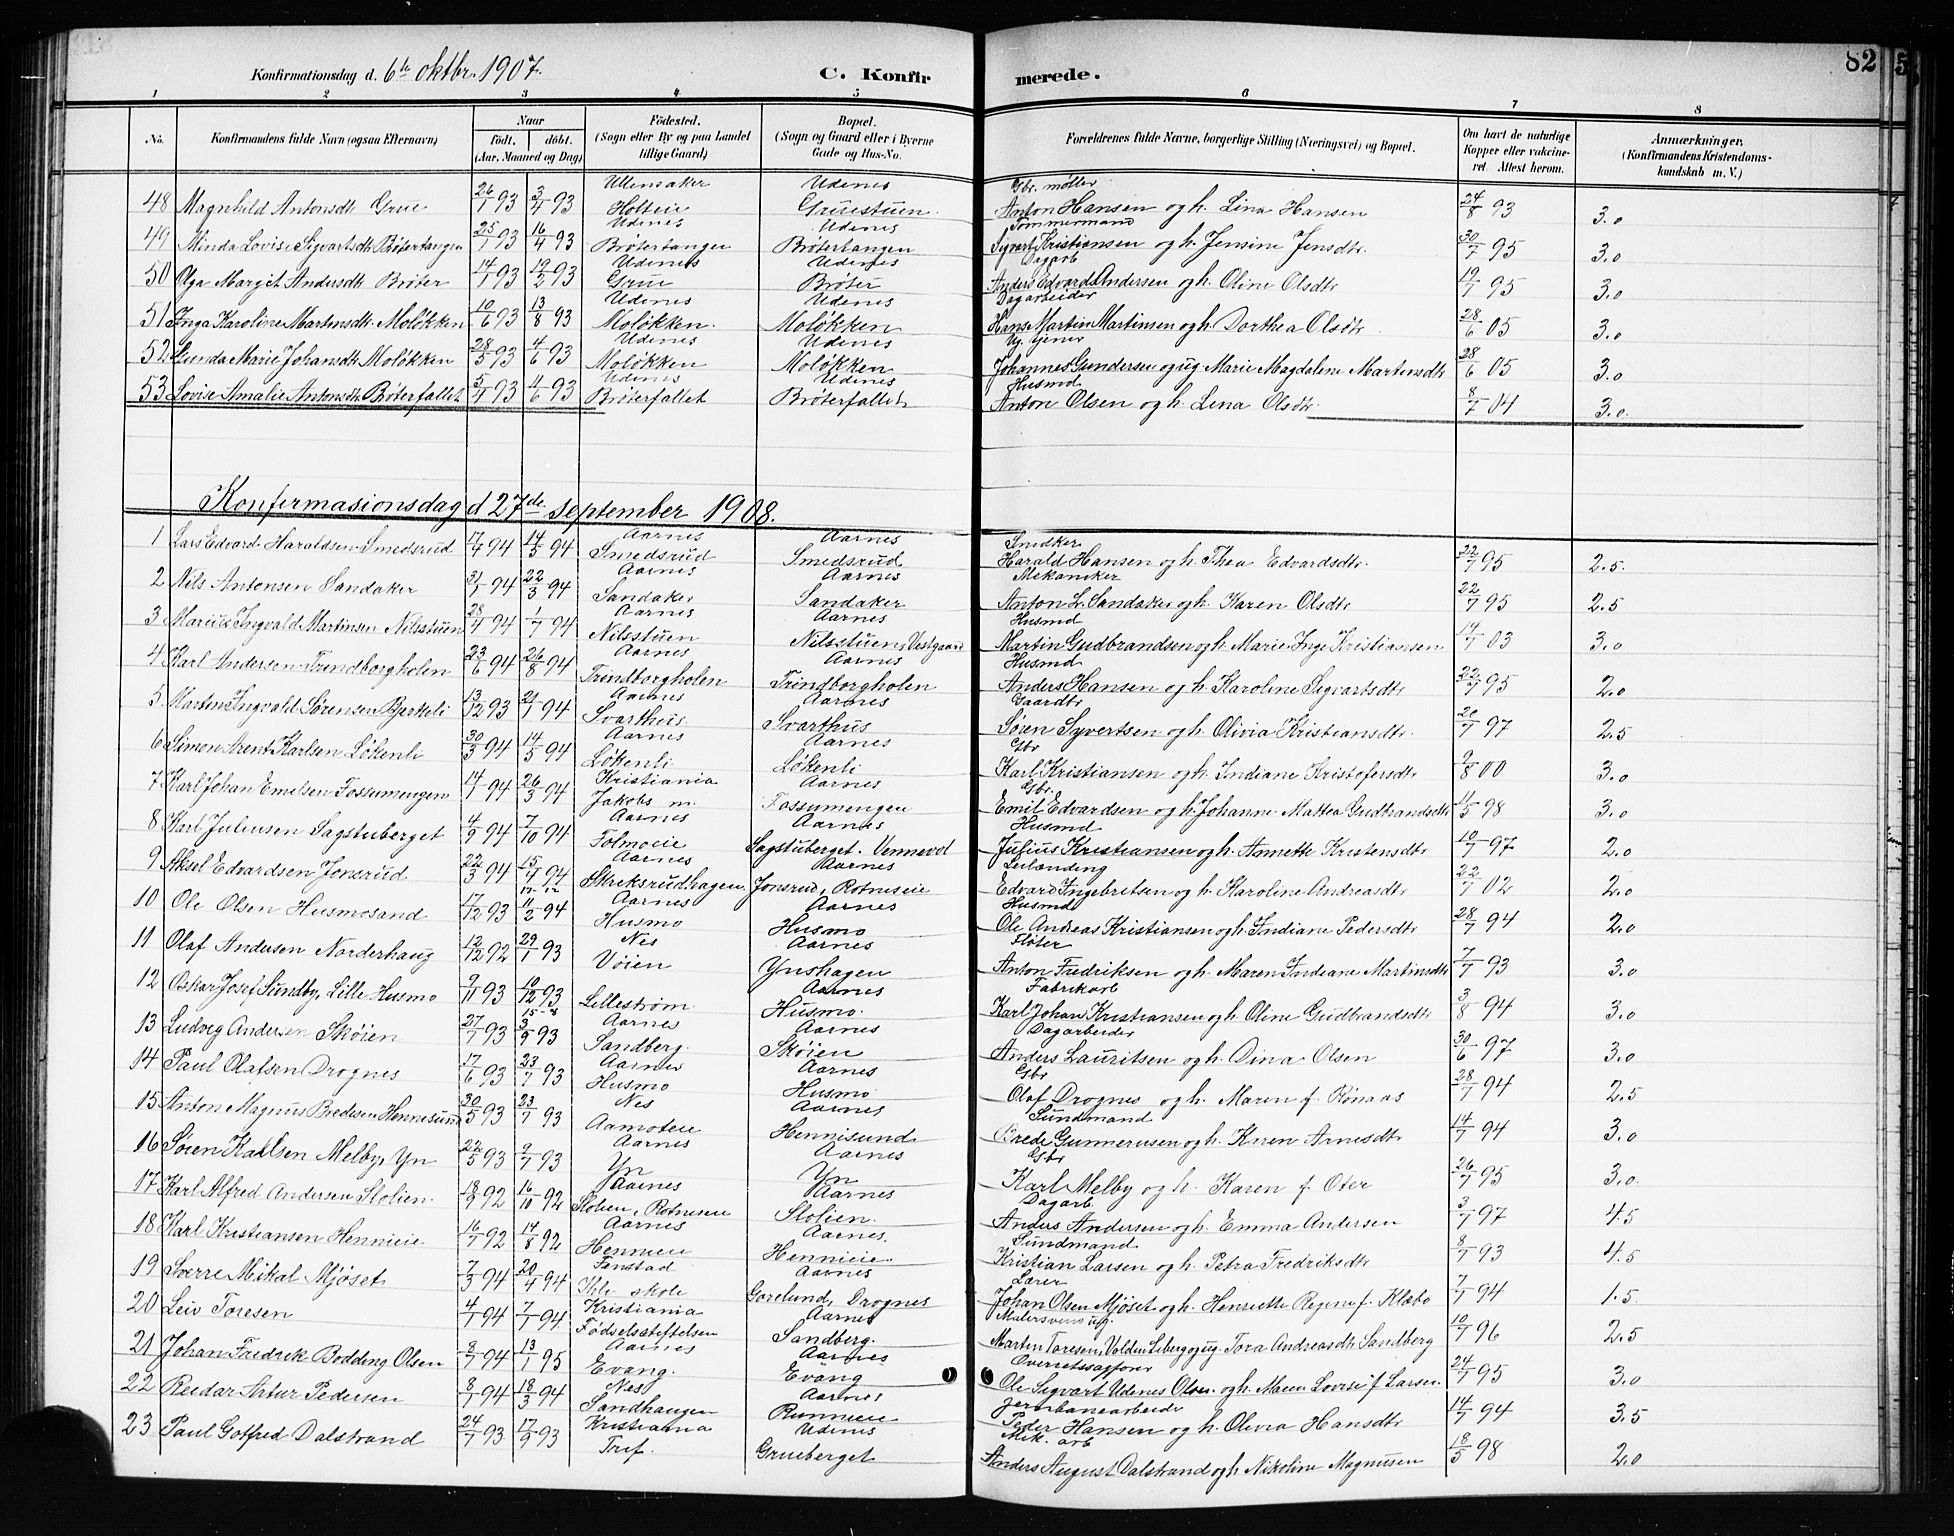 82
Konfirmationsdag d. 6te oktbr. 1907. C. Konfirmerede.
1 2 3 4 5 6 7 8
No. Konfirmandens fulde Navn (ogsaa Efternavn) Naar født. døbt. (Aar, Maaned og Dag) Fødested. (Sogn eller By og paa Landet tillige Gaard) Bopæl. (Sogn og Gaard eller i Byerne Gade og Hus-No. Forældrenes fulde Navne, borgerlige Stilling (Næringsvei) og Bopæl. Om havt de naturlige Kopper eller vakcineret. Attest herom. Anmærkninger. (Konfirmandens Kristendomskundskab m. V.)
48 Magnhild Antonsdtr Grue 26/1 93 3/4 93 Ullensaker Holteie Udenes Gruestuen Gbr. møller Anton Hansen og h. Lina Hansen 24/8 93 3.0
49 Minda Lovise Sigvartsdtr Brøtertangen 25/1 93 16/4 93 Udenes Brøtertangen Udenes Brøtertangen Tømmermand Sigvart Kristiansen og h. Jensine Jensdtr. 30/7 95 3.0
50 Olga Margit Andersdtr Brøter 14/1 93 19/2 93 Udenes Grue Udenes Brøter Dagarb Anders Edvard Andersen og h. Oline Olsdtr 19/7 95 3.0
51 Inga Karoline Martinsdtr. Moløkken 10/6 93 13/8 93 Udenes Moløkken. Udenes Moløkken Dagarbeider Hans Martin Martinsen og h. Dorthea Olsdtr 28/6 05 3.0
52 Gunda Marie Johansdtr Moløkken 28/5 93 4/6 93 Udenes Moløkken Udenes Moløkken Ug. tjener Johannes Gundersen og ug. Marie Magdalene Martinsdtr 28/6 05 3.0
53 Lovise Amalie Antonsdtr Brøterfallet 5/4 93 4/6 93 Udenes Brøterfallet Udenes Brøterfallet Husmd Anton Olsen og h. Lena Olsdtr. 8/7 04 3.0.
Konfirmasionsdag d 27de september 1908.
1 Lars Edvard Haraldsen Smedsrud 17/4 94 14/5 94 Aarnes Smedsrud Aarnes Smedsrud Snedker Harald Hansen og h. Thea Edvardsdtr. 22/7 95 2.5.
2 Nils Antonsen Sandaker 31/1 94 22/3 94 Aarnes Sandaker Aarnes Sandaker Mekaniker Anton L. Sandaker og h. Karen Olsdtr 22/7 95 2.5
3 Marius Ingvald Martinsen Nilsstuen 28/4 94 1/7 94 Aarnes Nilsstuen Aarnes Nilsstuen, Vestgaard Husmd Martin Gudbrandsen og h. Marie Inge Kristiansen 14/7 03 3.0
4 Karl Andersen Trindborgholen 23/6 94 26/8 94 Aarnes Trindborgholen Aarnes Trindborgholen Husmd Anders Hansen og h. Karoline Sigvartsdtr 22/7 95 2.0
5 Martin Ingvald Sørensen Bjerkeli 13/12 93 21/1 94 Aarnes Svarthus. Aarnes Svarthus Gaardbr Søren Syvertsen og h. Olivia Kristiansdtr. 20/7 97 2.5
6 Simon Arent Karlsen Løkenli 30/3 94 14/5 94 Aarnes Løkenli Aarnes Løkenli Gbr Karl Kristiansen og h. Indiane Kristofersdtr 9/8 00 3.0
7 Karl Johan Emilsen Fossumengen 14/1 94 26/3 94 Kristiania Jakobs m. Aarnes Fossumengen Gbr. Emil Edvardsen og h. Johanne Mattea Gudbrandsdtr 11/5 98 3.0
8 Karl Juliussen Sagstuberget 4/9 94 7/10 94 Aarnes Folmoeie Aarnes Sagstuberget. Vennevol Husmd Julius Kristiansen og h. Annette Kristensdtr 10/7 97 2.0
9 Aksel Edvardsen Jonsrud 22/3 94 15/4 94 Aarnes Skriksrudhagen Aarnes Jonsrud, Rotneseie Leilænding Edvard Ingebretsen og h. Karoline Andreasdtr 22/7 02 2.0
10 Ole Olsen Husmosand 17/12 93 11/2 94 Aarnes Husmo Aarnes Husmo Husmd Ole Andreas Kristiansen og h. Indiane Pedersdtr 28/7 94 2.0
11 Olaf Andersen Norderhaug 12/12 92 29/1 93 Nes Vøien Aarnes Ynshagen Fløter Anton Fredriksen og h. Maren Indiane Martinsdtr 7/7 93 3.0
12 Oskar Josef Sundby, Lille Husmo 9/11 93 10/12 93 Lillestrøm Aarnes Husmo. Fabrikarb Karl Johan Kristiansen og h. Oline Gudbrandsdtr 3/8 94 3.0
13 Ludvig Andersen Skøien 27/7 93 3/9 93 Aarnes Sandberg. Aarnes Skøien Dagarbeider Anders Lauritsen og h. Dina Olsen 30/6 97 3.0
14 Paul Olafsen Drognes 17/6 93 23/7 93 Aarnes Husmo Aarnes Husmo Gbr Olaf Drognes og h. Maren f. Rønaas 28/7 94 2.5
15 Anton Magnus Bredesen Hennesund 30/5 93 23/7 93 Nes Aamoteie Aarnes Hennisund Sundmand Brede Gunnerusen og h. Karen Arnesdtr 14/7 94 3.0
16 Søren Karlsen Melby, Yn 22/5 93 9/7 93 Aarnes Yn Aarnes Yn Gbr Karl Melby og h. Karen f. Oter 26/7 95 3.0.
17 Karl Alfred Andersen Stolien. 18/9 92 16/10 92 Aarnes Stolien, Rotneseie Aarnes Stolien. Dagarb Anders Andersen og h. Emma Andersen 3/7 97 4.5
18 Karl Kristiansen Hennieie 16/7 92 14/8 92 Aarnes Hennieie Aarnes. Hennieie Sundmand Kristian Larsen og h. Petra Fredriksdtr 8/7 93 4.5
19 Sverre Mikal Mjøset 7/3 94 20/4 94 Fenstad skole Aarnes Gorelund, Drognes Lærer Johan Olsen Mjøset og h. Henriette Regine f. Klæbo 7/7 94 1.5
20 Leiv Toresen 4/1 94 7/1 94 Kristiania Fødselsstiftelsen Aarnes Sandberg. Malersvend ug. Martin Toresen, og ug. Tora Andreasdtr Sandberg 10/7 96 2.5
21 Johan Fredrik Bødding Olsen 8/7 94 13/1 95 Aarnes Evang. Aarnes Evang Overretssagfører Ole Sigvart Udenes Olsen og h. Maren Lovise f. Larsen. 24/7 95 3.0
22 Reidar Artur Pedersen 8/1 94 18/3 94 Nes Sandhaugen Aarnes Runnieie Jernbanearbeider Peder Hansen og h. Olivia Hansdtr 14/7 94 3.5
23 Paul Gotfred Dalstrand 24/7 93 17/9 93 Kristiania Tref. Udenes Grueberget Mek. arb Anders August Dalstrand og h. Nikoline Magnusen 18/5 98 2.0